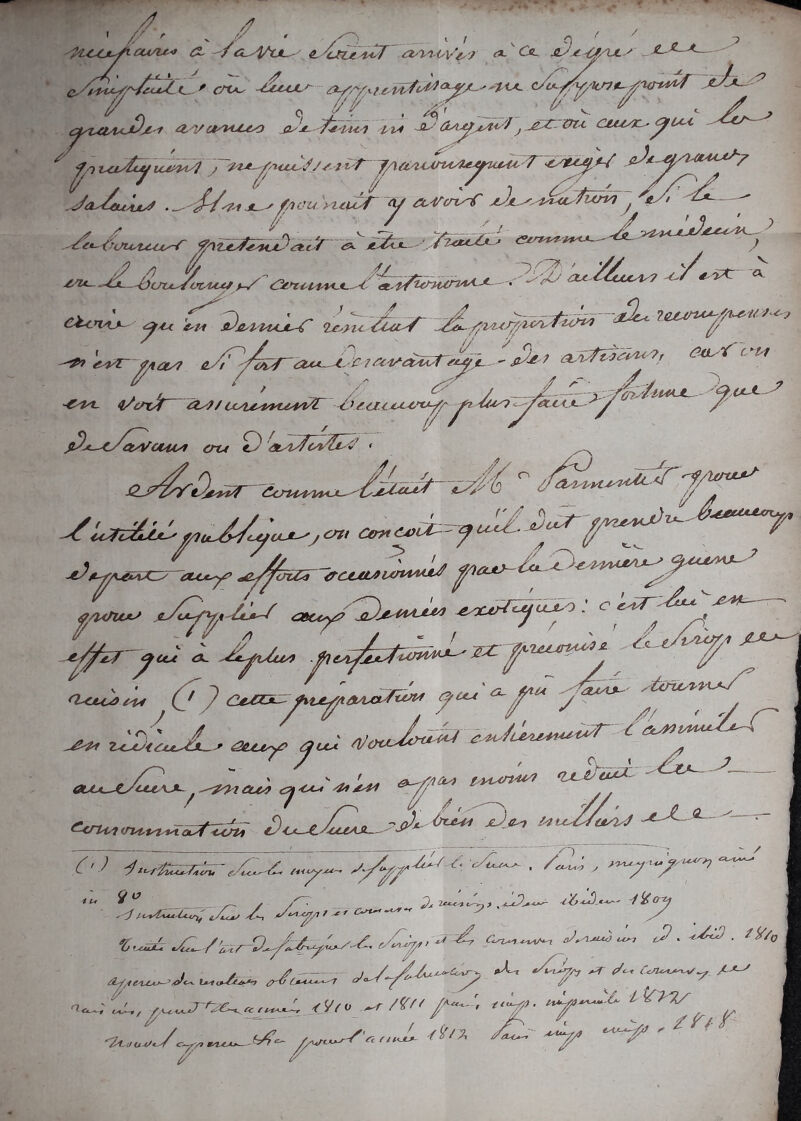 nécessaires à la vie soient arrivés à ce dégré de
simplicité où leur apprentissage ne suppose point de
grandes avances de tems ni d'argent, et où ceux qui les
pratiquent, ne puissent par conséquent exiger de grands
salaires. Il ne pourrait y avoir de nation, si le
laboureur prétendait à être traité comme le médecin,
ou le boulanger comme l'astronome. D'ailleurs il est à
croire qu'en dernier résultat la proportion des recompenses
n'est pas si fort au desavantage des artisans, car on
en voit assurément beaucoup plus faire fortune que
de savans ou d'artistes.
Ardent comme l'était Mr Parmentier pour
l'utilité publique, on conçoit qu'il dût prendre beaucoup
de part aux efforts occasionnés par la dernière guerre
pour suppléer aux denrées exotiques: c'est lui en
effet qui à le plus perfectionné et préconisé le sirop de
raisin, (1) cette préparation qui a pû faire tourner
en ridicule ceux qui voulaient entièrement l'assimiler
au sucre, mais qui n'en a pas moins reduit la
consommation du sucre de bien des milliers de
(1) Instruction sur les moyens de suppléer le sucre. Paris, mequignon ainé
in 8º
Instruction sur les sirops et conserves de raisins. idem ibidem 1809
Traité sur l'art de fabriquer les sirops et les conserves de raisins id. ibid. 1810
aperçu des resultats obtenus de la fabrication des sirops et des conserves de
raisins, pendt les années 1810 et 1811 paris, imp. impériale 1812
nouvel aperçu &a pour l'année 1812 Paris imp imp. 1813